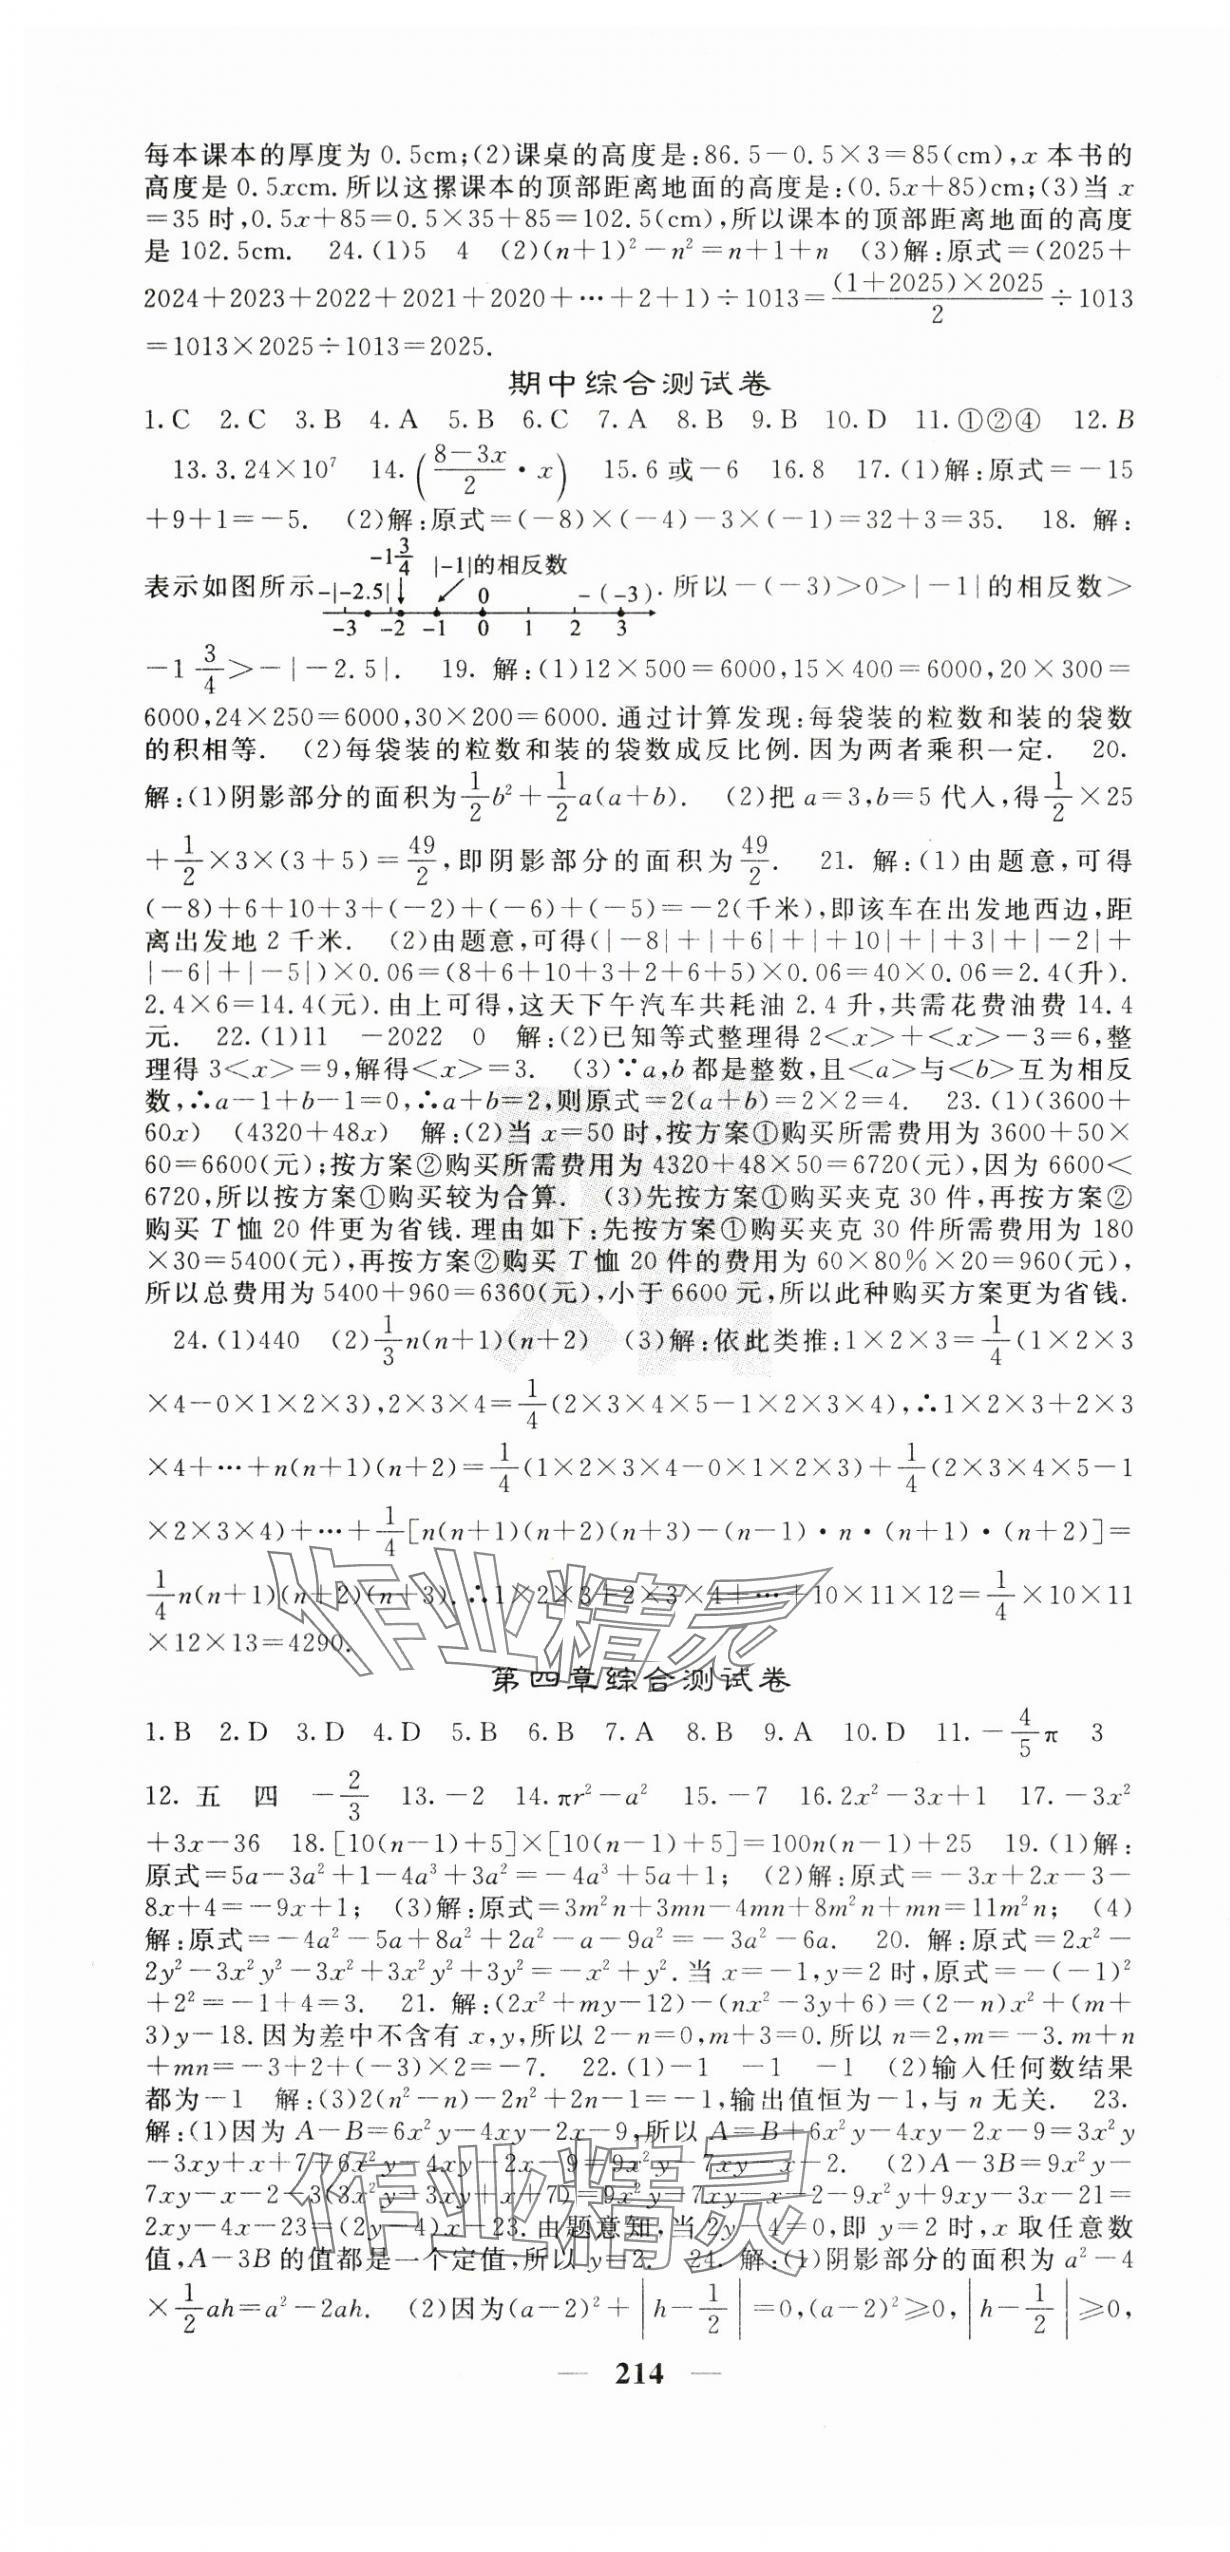 每本课本的厚度为 0.5cm;(2)课桌的高度是:86.5-0.5×3=85(cm),x 本书的
高度是 0.5xcm.所以这摞课本的顶部距离地面的高度是:(0.5x+85)cm;(3)当 x
=35 时,0.5x+85=0.5×35+85=102.5(cm),所以课本的顶部距离地面的高度
是 102.5cm. 24.(1)5 4 (2)(n+1)²-n²=n+1+n (3)解:原式=(2025+
2024+2023+2022+2021+2020+…+2+1)÷1013=(1+2025)×2025/2÷1013
=1013×2025÷1013=2025.
期中综合测试卷
1.C 2.C 3.B 4.A 5.B 6.C 7.A 8.B 9.B 10.D 11.①②④ 12.B
13.3.24×10⁷ 14.(8-3x/2·x) 15.6或-6 16.8 17.(1)解:原式=-15
+9+1=-5. (2)解:原式=(-8)×(-4)-3×(-1)=32+3=35. 18.解:
表示如图所示 -|-2.5| -1 3/4 |-1|的相反数 0 -(-3) .所以-(-3)>0>|-1|的相反数>
-3 -2 -1 0 1 2 3
-1 3/4>-|-2.5|. 19.解:(1)12×500=6000,15×400=6000,20×300=
6000,24×250=6000,30×200=6000.通过计算发现:每袋装的粒数和装的袋数
的积相等. (2)每袋装的粒数和装的袋数成反比例.因为两者乘积一定. 20.
解:(1)阴影部分的面积为1/2b²+1/2a(a+b). (2)把 a=3,b=5 代入,得1/2×25
+1/2×3×(3+5)=49/2,即阴影部分的面积为49/2. 21.解:(1)由题意,可得
(-8)+6+10+3+(-2)+(-6)+(-5)=-2(千米),即该车在出发地西边,距
离出发地 2 千米. (2)由题意,可得(|-8|+|+6|+|+10|+|+3|+|-2|+
|-6|+|-5|)×0.06=(8+6+10+3+2+6+5)×0.06=40×0.06=2.4(升).
2.4×6=14.4(元).由上可得,这天下午汽车共耗油 2.4 升,共需花费油费 14.4
元. 22.(1)11 -2022 0 解:(2)已知等式整理得 2<x>+<x>-3=6,整
理得 3<x>=9,解得<x>=3. (3)∵a,b 都是整数,且<a>与<b>互为相反
数,∴a-1+b-1=0,∴a+b=2,则原式=2(a+b)=2×2=4. 23.(1)(3600+
60x) (4320+48x) 解:(2)当 x=50 时,按方案①购买所需费用为 3600+50×
60=6600(元);按方案②购买所需费用为 4320+48×50=6720(元),因为 6600<
6720,所以按方案①购买较为合算. (3)先按方案①购买夹克 30 件,再按方案②
购买 T 恤 20 件更为省钱.理由如下:先按方案①购买夹克 30 件所需费用为 180
×30=5400(元),再按方案②购买 T 恤 20 件的费用为 60×80%×20=960(元),
所以总费用为 5400+960=6360(元),小于 6600 元,所以此种购买方案更为省钱.
24.(1)440 (2)1/3n(n+1)(n+2) (3)解:依此类推:1×2×3=1/4(1×2×3
×4-0×1×2×3),2×3×4=1/4(2×3×4×5-1×2×3×4),∴1×2×3+2×3
×4+…+n(n+1)(n+2)=1/4(1×2×3×4-0×1×2×3)+1/4(2×3×4×5-1
×2×3×4)+…+1/4[n(n+1)(n+2)(n+3)-(n-1)·n·(n+1)·(n+2)]=
1/4n(n+1)(n+2)(n+3).∴1×2×3+2×3×4+…+10×11×12=1/4×10×11
×12×13=4290.
作业精灵
第四章综合测试卷
1.B 2.D 3.D 4.D 5.B 6.B 7.A 8.B 9.A 10.D 11.-4/5π 3
12.五 四 -2/3 13.-2 14.πr²-a² 15.-7 16.2x²-3x+1 17.-3x²
+3x-36 18.[10(n-1)+5]×[10(n-1)+5]=100n(n-1)+25 19.(1)解:
原式=5a-3a²+1-4a³+3a²=-4a³+5a+1; (2)解:原式=-3x+2x-3-
8x+4=-9x+1; (3)解:原式=3m²n+3mn-4mn+8m²n+mn=11m²n; (4)
解:原式=-4a²-5a+8a²+2a²-a-9a²=-3a²-6a. 20.解:原式=2x²-
2y²-3x²y²-3x²+3x²y²+3y²=-x²+y².当 x=-1,y=2 时,原式=-(-1)²
+2²=-1+4=3. 21.解:(2x²+my-12)-(nx²-3y+6)=(2-n)x²+(m+
3)y-18.因为差中不含有 x,y,所以 2-n=0,m+3=0.所以 n=2,m=-3.m+n
+mn=-3+2+(-3)×2=-7. 22.(1)-1 -1 -1 (2)输入任何数结果
都为-1 解:(3)2(n²-n)-2n²+2n-1=-1,输出值恒为-1,与 n 无关. 23.
解:(1)因为 A-B=6x²y-4xy-2x-9,所以 A=B+6x²y-4xy-2x-9=3x²y
-3xy+x+7+6x²y-4xy-2x-9=9x²y-7xy-x-2. (2)A-3B=9x²y-
7xy-x-2-3(3x²y-3xy+x+7)=9x²y-7xy-x-2-9x²y+9xy-3x-21=
2xy-4x-23=(2y-4)x-23.由题意知,当 2y-4=0,即 y=2 时,x 取任意数
值,A-3B 的值都是一个定值,所以 y=2. 24.解:(1)阴影部分的面积为 a²-4
×1/2ah=a²-2ah. (2)因为(a-2)²+|h-1/2|=0,(a-2)²≥0,|h-1/2|≥0,
作业精灵
— 214 —